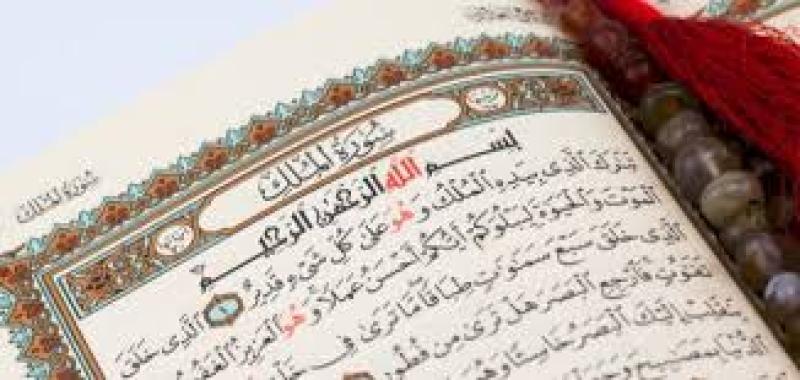 سُورَةُ المُلْكِ
سُورَةُ المُلْكِ
بِسْمِ اللَّهِ الرَّحْمَنِ الرَّحِيمِ
تَبَٰرَكَ الَّذِي بِيَدِهِ الْمُلْكُ وَهُوَ عَلَىٰ كُلِّ شَيْءٍ قَدِيرٌ ١ الَّذِي خَلَقَ
الْمَوْتَ وَالْحَيَوٰةَ لِيَبْلُوَكُمْ أَيُّكُمْ أَحْسَنُ عَمَلًا وَهُوَ الْعَزِيزُ الْغَفُورُ
الَّذِي خَلَقَ سَبْعَ سَمَٰوَٰتٍ طِبَاقًا مَا تَرَىٰ فِي خَلْقِ
تَفَٰوُتٍ فَارْجِعِ الْبَصَرَ هَلْ تَرَىٰ مِنْ فُطُورٍ
يَنْقَلِبْ إِلَيْكَ الْبَصَرُ خَاسِئًا وَهُوَ
الدُّنْيَا بِمَصَٰبِيحَ